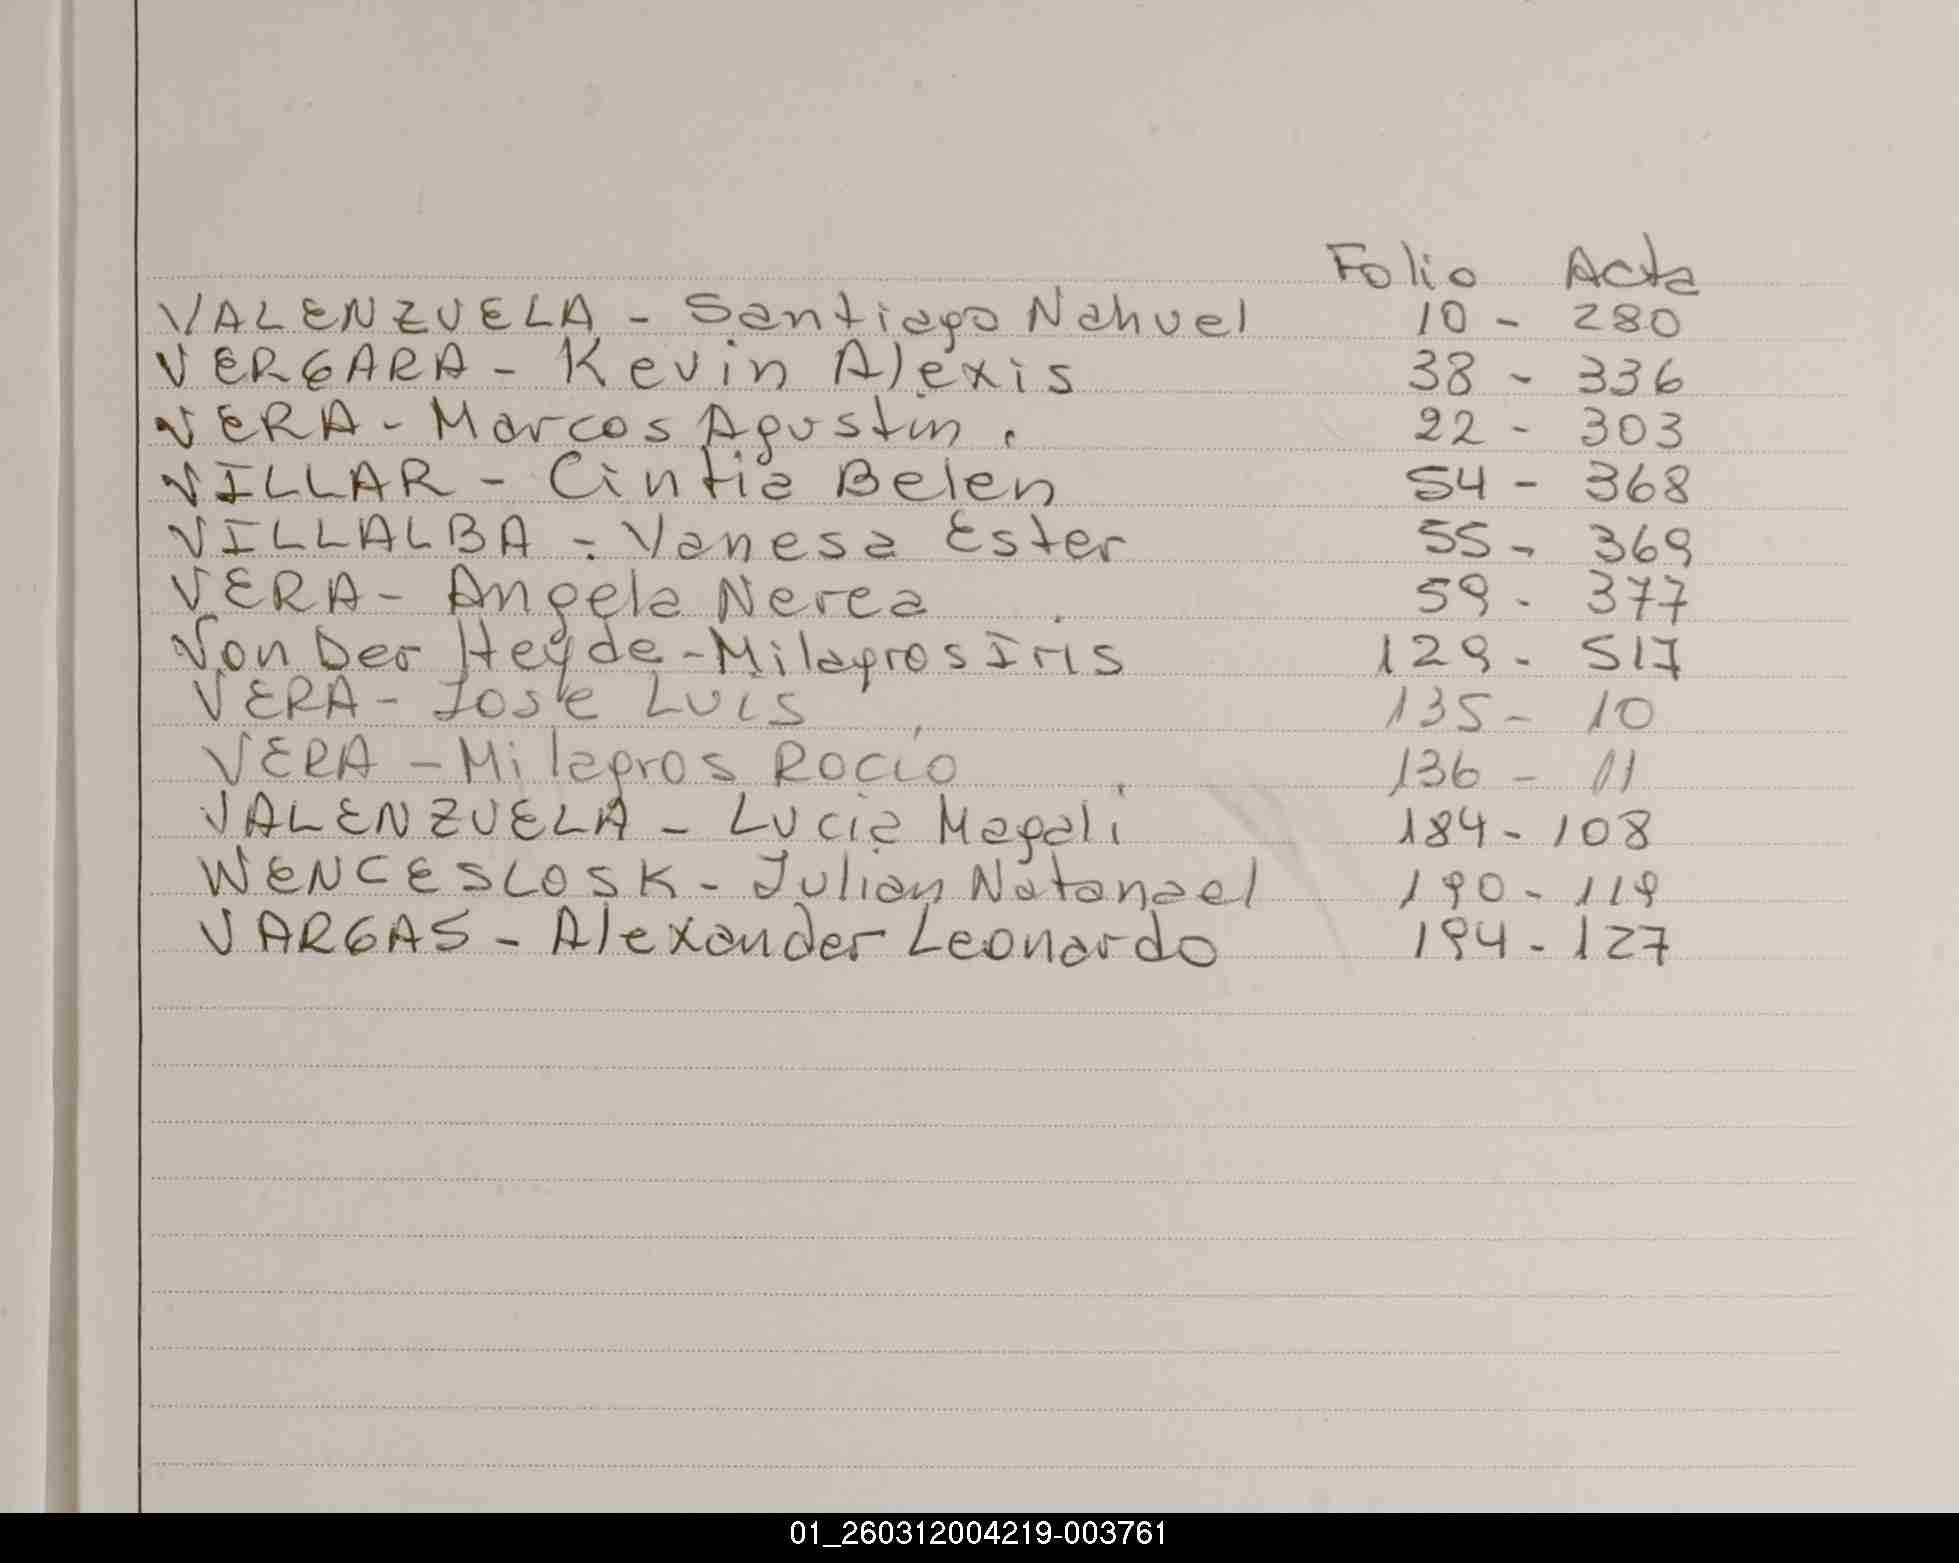 Folio Acta
VALENZUELA - Santiago Nahuel 10 - 280
VERGARA - Kevin Alexis 38 - 336
VERA - Marcos Agustin. 22 - 303
VILLAR - Cintia Belen 54 - 368
VILLALBA - Vanesa Ester 55 - 369
VERA - Angela Nerea 59 - 377
Von Der Heyde - Milagros Iris 129 - 517
VERA - Jose Luis 135 - 10
VERA - Milagros Rocio 136 - 11
VALENZUELA - Lucia Magali 184 - 108
WENCESLOSK - Julian Natanael 190 - 119
VARGAS - Alexander Leonardo 194 - 127
01_260312004219-003761